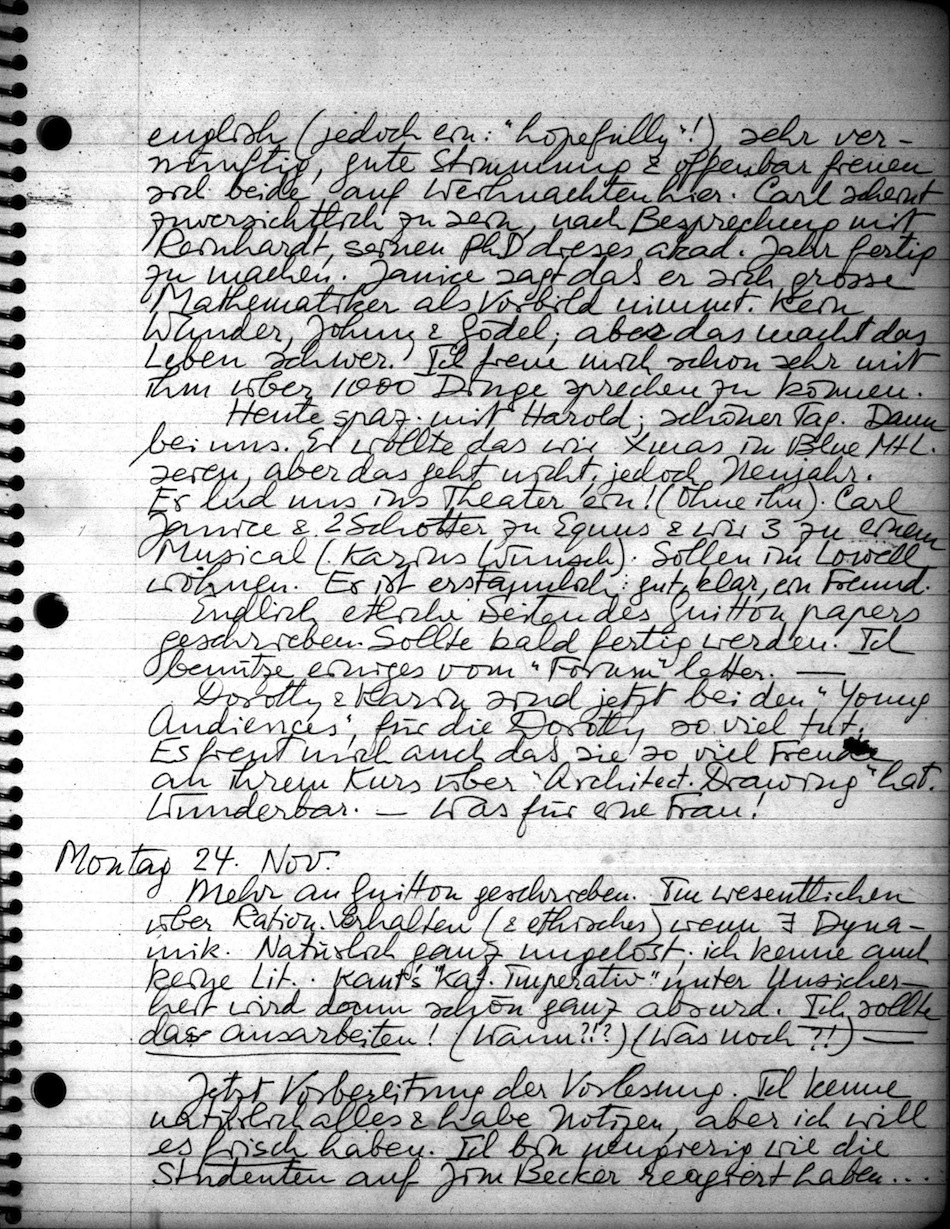 english (jedoch ein: "hopefully"!), sehr ver-
nünftig, gute Stimmung & offenbar freuen
sich beide auf Weihnachten hier. Carl scheint
zuversichtlich zu sein, nach Besprechung mit
Reinhardt, seinen PhD dieses akad. Jahr fertig
zu machen. Janice sagt das er sich grosse
Mathematiker als Vorbild nimmt. Kein
Wunder, Johnny & Gödel; aber das macht das
Leben schwer. Ich freue mich schon sehr mit
ihm über 1000 Dinge sprechen zu können.
Heute spaz. mit Harold; schöner Tag. Dann
bei uns. Er wollte das wir Xmas in Blue Mt L.
seien, aber das geht nicht, jedoch Neujahr.
Er lud uns ins Theater ein! (Ohne ihn). Carl
Janice & 2 Schotter zu Equus & wir 3 zu einem
Musical (Karins Wunsch). Sollen im Lowell
wohnen. Er ist erstaunlich: gut, klar, ein Freund.
Endlich etliche Seiten des Guitton papers
geschrieben. Sollte bald fertig werden. Ich
benütze einiges vom "Forum" letter. —
Dorothy & Karin sind jetzt bei den "Young
Audiences", für die Dorothy so viel tut.
Es freut mich auch das sie so viel Freude
an ihrem Kurs über "Architect. Drawing" hat.
Wunderbar. — Was für eine Frau!
Montag 24. Nov.
Mehr an Guitton geschrieben. Im wesentlichen
über Ration. Verhalten (& ethisches) wenn ∃ Dyna-
mik. Natürlich ganz ungelöst, ich kenne auch
keine Lit. Kant's "Kat. Imperativ" unter Unsicher-
heit wird dann schön ganz absurd. Ich sollte
das ausarbeiten! (Wann?!?) (Was noch?!) —
Jetzt Vorbereitung der Vorlesung. Ich kenne
natürlich alles & habe Notizen, aber ich will
es frisch haben. Ich bin neugierig wie die
Studenten auf Jim Becker reagiert haben...